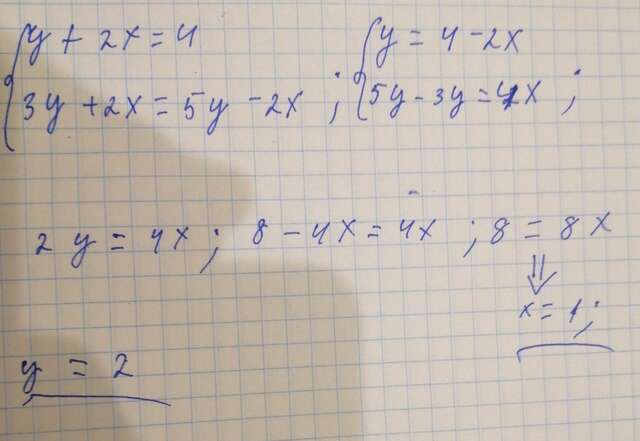 y + 2x = 4 y = 4 - 2x
3y + 2x = 5y - 2x ; 5y - 3y = 4x ;
2y = 4x ; 8 - 4x = 4x ; 8 = 8x
⇓
x = 1 ;
y = 2